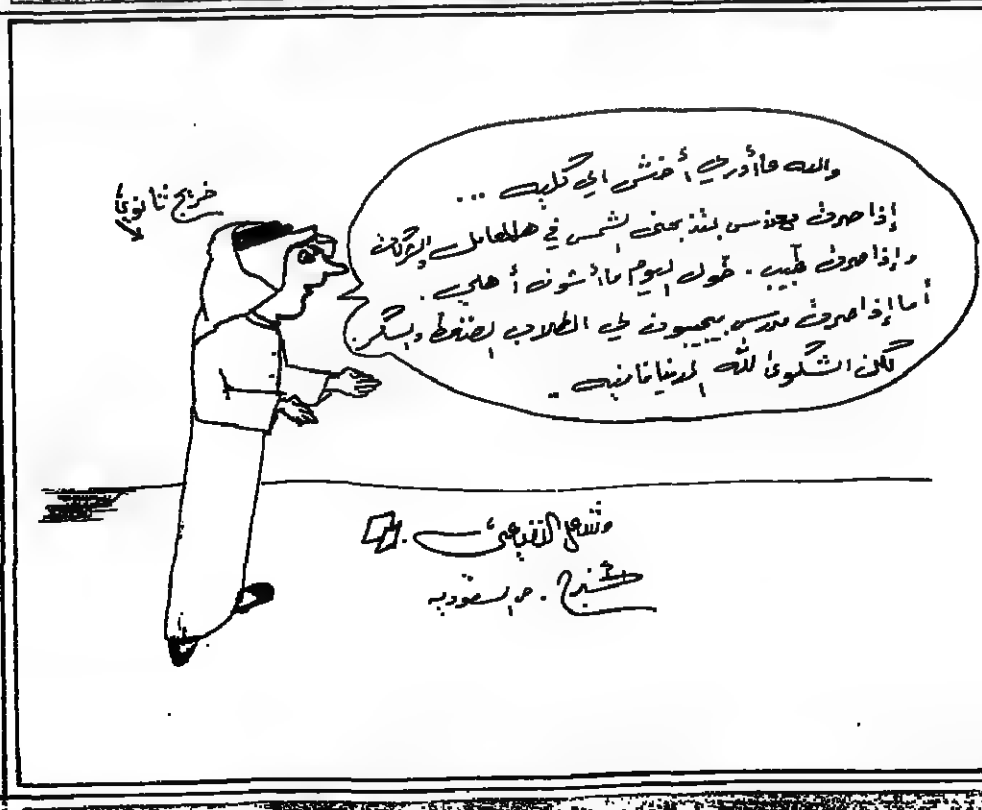 خريج ثانوية
والله ما أدري أخش اي كلية ...
إذا صرت مهندس بتذبحني الشمس في هالمعامل والشركات
وإذا صرت طبيب . طول اليوم ما أشوف أهلي .
أما إذا صرت مدرس بيجيبون لي الطلاب الضغط والسكر .
لكن الشكوى لله الدنيا فانيه ..
مشعل
. م السعودية